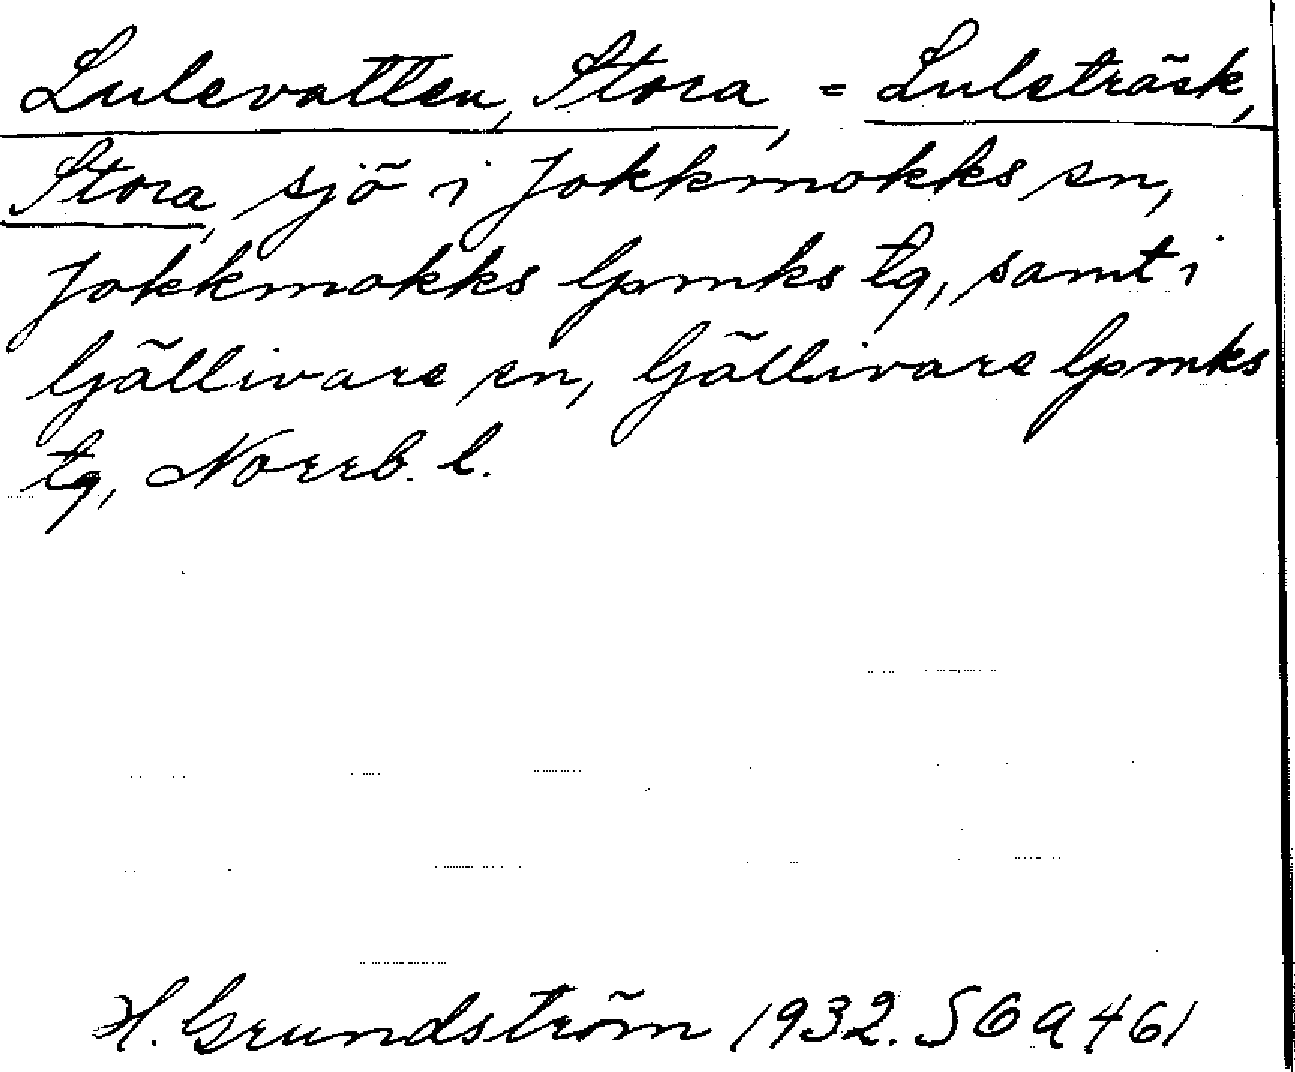 Lulevatten, Stora, = Luleträsk,
Stora, sjö i Jokkmokks sn,
Jokkmokks lpmks tg, samt i
Gällivare sn, Gällivare lpmks
tg, Norrb. l.
H. Grundström 1932. SOA 461